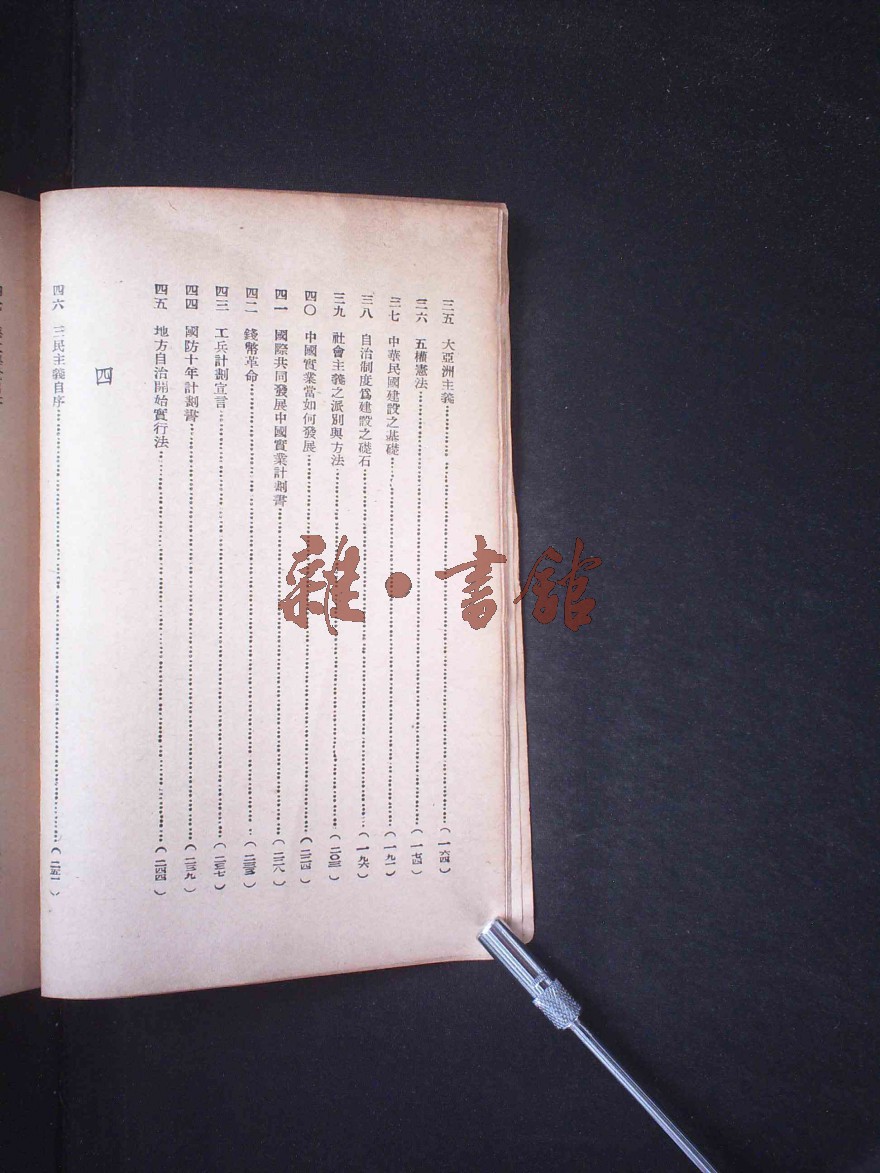 三五 大亞洲主義……(一六四)
三六 五權憲法……(一七四)
三七 中華民國建設之基礎……(一九一)
三八 自治制度爲建設之礎石……(一九六)
三九 社會主義之派別與方法……(二〇三)
四〇 中國實業當如何發展……(二二四)
四一 國際共同發展中國實業計劃書……(二二八)
四二 錢幣革命……
四三 工兵計劃宣言……(二三七)
四四 國防十年計劃書……(二三九)
四五 地方自治開始實行法……(二四四)
四
四六 三民主義自序……(二五一)
雜·書館